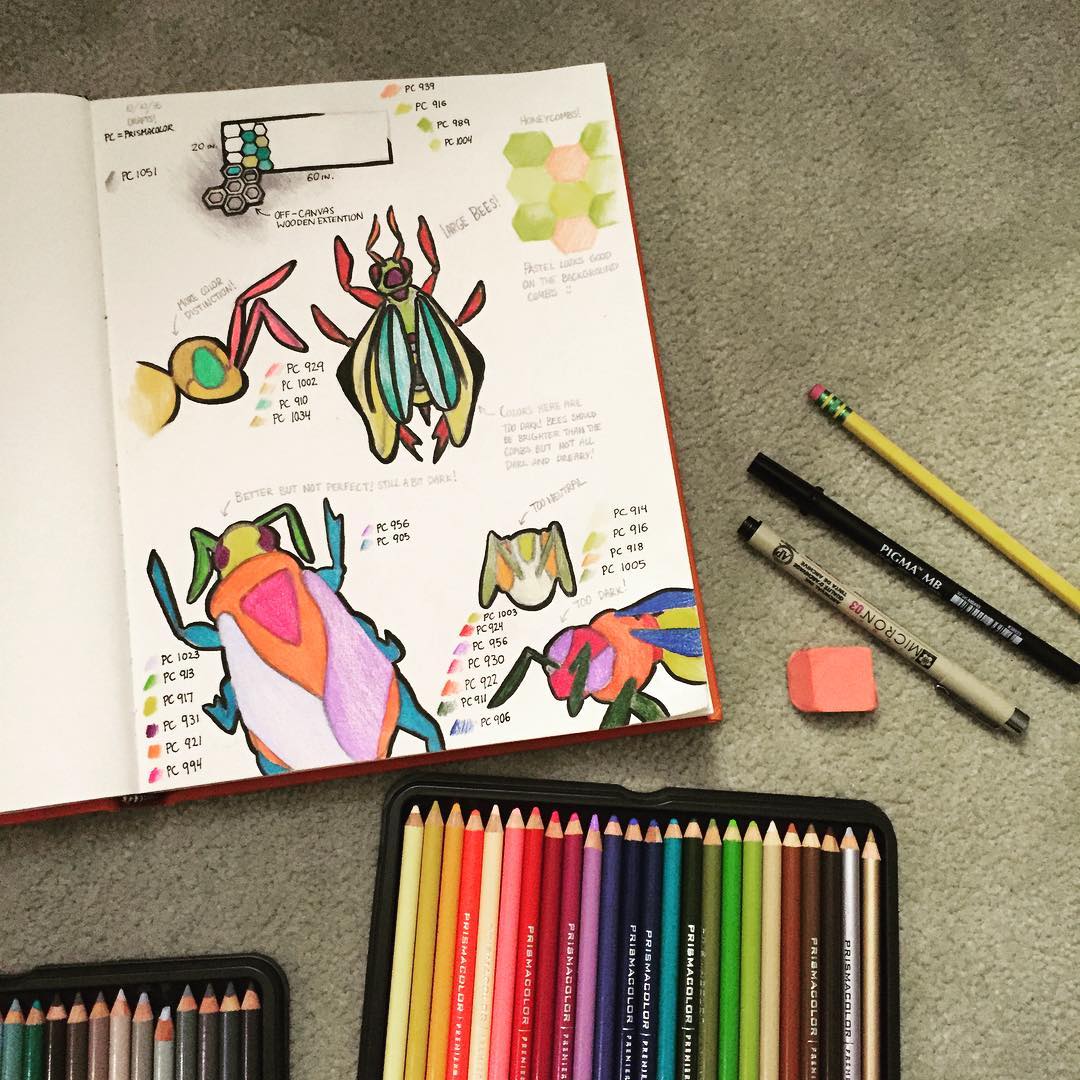 DRAFTS!
PC = PRISMACOLOR
PC 1051
20 in.
60 in.
OFF-CANVAS
WOODEN EXTENTION
PC 939
PC 916
PC 989
PC 1004
HONEYCOMBS!
PASTEL LOOKS GOOD
ON THE BACKGROUND
COMBS :)
LARGE BEES!
MORE COLOR
DISTINCTION!
PC 929
PC 1002
PC 910
PC 1034
COLORS HERE ARE
TOO DARK! BEES SHOULD
BE BRIGHTER THAN THE
COMBS BUT NOT ALL
DARK AND DREARY!
BETTER BUT NOT PERFECT! STILL A BIT DARK!
PC 956
PC 905
TOO NEUTRAL
PC 914
PC 916
PC 918
PC 1005
TOO DARK!
PC 1003
PC 924
PC 956
PC 930
PC 922
PC 911
PC 906
PC 1023
PC 913
PC 917
PC 931
PC 921
PC 994
PIGMA MB
MICRON 03
PRISMACOLOR | PREMIER
PRISMACOLOR | PREMIER
PRISMACOLOR | PREMIER
PRISMACOLOR | PREMIER
PRISMACOLOR | PREMIER
PRISMACOLOR | PREMIER
PRISMACOLOR | PREMIER
PRISMACOLOR | PREMIER